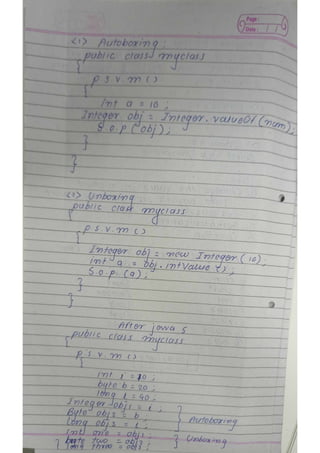 Page:
Date: / /
<1> Autoboxing:
public class myclass
{
p s v m ()
{
int a = 10;
Integer obj = Integer.valueOf(num);
S.o.p(obj);
}
}
<2> Unboxing
public class myclass
{
p s v m ()
{
Integer obj = new Integer(10);
int a = obj.intValue();
S.o.p.(a);
}
}
After jowa 5
public class myclass
{
p s v m ()
{
int i = 10;
byte b = 20;
long l = 40;
Integer obj1 = i;
Byte obj2 = b;
Long obj3 = l;
} Autoboxing
int one = obj1;
byte two = obj2;
long three = obj3;
} Unboxing
}
}